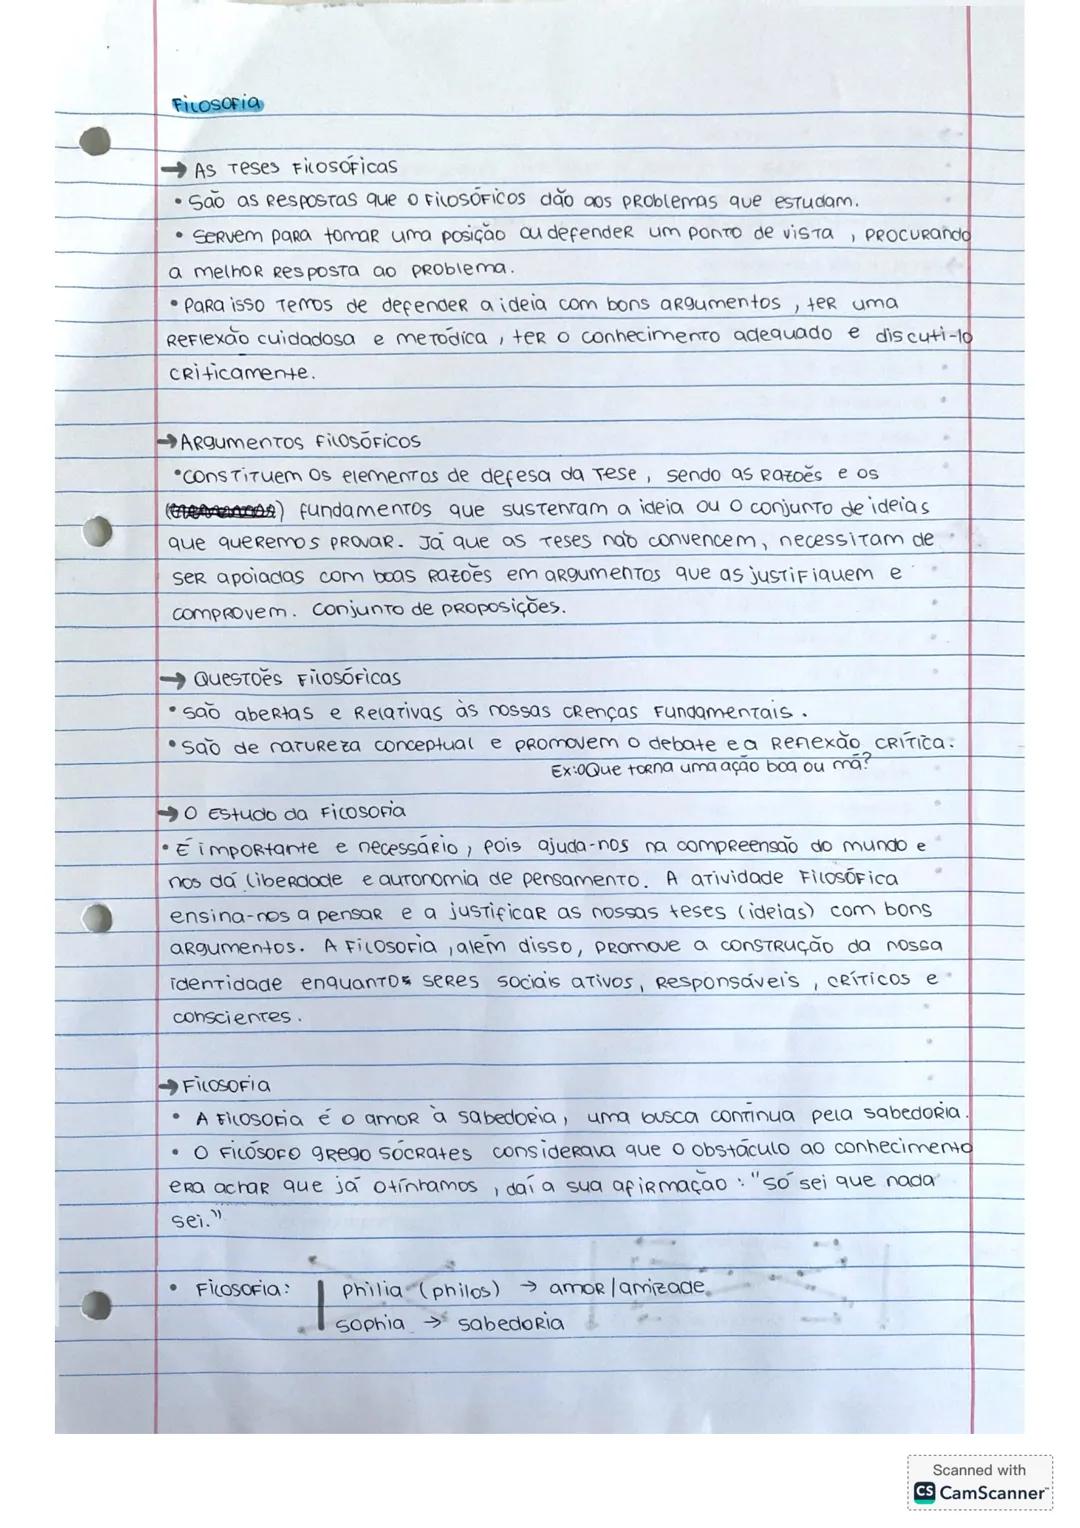 Filosofia
→ As Teses Filosóficas
• São as respostas que o filosóficos dão aos problemas que estudam.
• Servem para tomar uma posição ou defender um ponto de vista, procurando
a melhor resposta ao problema.
• Para isso temos de defender a ideia com bons argumentos, ter uma
reflexão cuidadosa e metódica, ter o conhecimento adequado e discuti-lo
criticamente.
→ Argumentos filosóficos
• Constituem os elementos de defesa da tese, sendo as razões e os
fundamentos que sustentam a ideia ou o conjunto de ideias
que queremos provar. Já que as teses não convencem, necessitam de
ser apoiadas com boas razões em argumentos que as justifiquem e
comprovem. Conjunto de proposições.
→ Questões Filosóficas
• São abertas e relativas às nossas crenças fundamentais.
• São de natureza conceptual e promovem o debate e a reflexão crítica.
Ex: O que torna uma ação boa ou má?
→ O Estudo da Filosofia
• É importante e necessário, pois ajuda-nos na compreensão do mundo e
nos dá liberdade e autonomia de pensamento. A atividade Filosófica
ensina-nos a pensar e a justificar as nossas teses (ideias) com bons
argumentos. A Filosofia, além disso, promove a construção da nossa
identidade enquantos seres sociais ativos, responsáveis, críticos e
conscientes.
→ Filosofia
• A Filosofia é o amor à sabedoria, uma busca contínua pela sabedoria.
• O Filósofo grego Sócrates considerava que o obstáculo ao conhecimento
era achar que já o tínhamos, daí a sua afirmação: "Só sei que nada
sei."
• Filosofia: | philia (philos) → amor/amizade
sophia → sabedoria
Scanned with
CS CamScanner